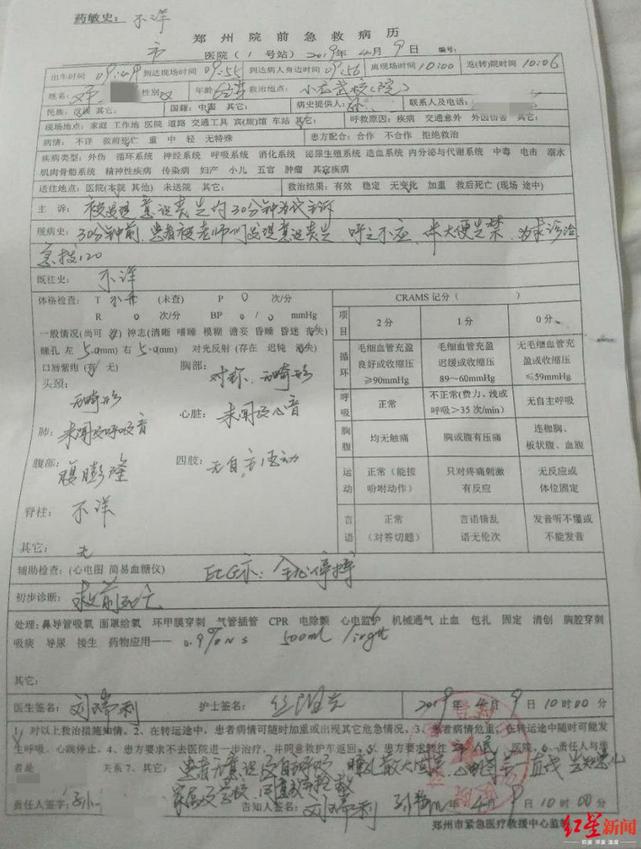 药敏史：不详
郑州院前急救病历
市 医院（1号站）2019年4月9日 编号：
出车时间 09:49 到达现场时间 09:55 到达病人身边时间 09:56 离现场时间 10:00 返(转)院时间 10:06
姓名： 性别 女 年龄 救治地点：小龙武校(院)
民族：汉族 其它： 国籍：中国 其它： 病史提供人： 联系人及电话：
现场地点：家庭 工作地 医院 道路 交通工具 宾(旅)馆 车站 其它： 呼救原因：疾病 交通意外 外因伤害 其它：
病情：不详 救前死亡 重 中 轻 无特殊 患方配合：合作 不合作 拒绝救治
疾病类型：外伤 循环系统 神经系统 呼吸系统 消化系统 泌尿生殖系统 造血系统 内分泌与代谢系统 中毒 电击 溺水
肌肉骨骼系统 精神性疾病 传染病 妇产 小儿 五官 肿瘤 其它疾病
送往地点：医院(本院 其他) 未送院 其它： 救治结果：有效 稳定 无变化 加重 救后死亡 (现场 途中)
主诉：被发现意识丧失约30分钟为代主诉
现病史：30分钟前，患者被老师们发现意识丧失，呼之不应，伴大便失禁，为求诊治
急拨120
既往史：不详
体格检查：T 不升 (未查) P 0 次/分 CRAMS 记分（ ）
R 0 次/分 BP 0/0 mmHg 项目 2分 1分 0分
一般情况(尚可 差) 神志(清晰 嗜睡 模糊 谵妄 昏睡 昏迷 丧失)
瞳孔 左 5.0(mm) 右 5.0(mm) 对光反射 (存在 迟钝 消失)
循环 毛细血管充盈良好或收缩压≥90mmHg 毛细血管充盈迟缓或收缩压89～60mmHg 无毛细血管充盈或收缩压≤59mmHg
口唇紫绀(有 无) 胸部：对称、无畸形
头颈：无畸形 心脏：未闻及心音
呼吸 正常 不正常(费力、浅或呼吸>35次/min) 无自主呼吸
肺：未闻及呼吸音
胸腹 均无触痛 胸或腹有压痛 连枷胸、板状腹、血腹
腹部：腹膨隆 四肢：无自主活动
运动 正常（能按吩咐动作） 只对疼痛刺激有反应 无反应或体位固定
脊柱：不详
言语 正常（对答切题） 言语错乱语无伦次 发音听不懂或不能发音
其它：无
辅助检查：(心电图 简易血糖仪) ECG示：全心停搏
初步诊断：救前死亡
处理：鼻导管吸氧 面罩给氧 环甲膜穿刺 气管插管 CPR 电除颤 心电监护 机械通气 止血 包扎 固定 清创 胸腔穿刺
吸痰 导尿 接生 药物应用—— 0.9%NS 500ml ivgtt
其它：
医生签名： 护士签名： 2019年4月9日10时00分
1、对以上救治措施知情。2、在转运途中，患者病情可随时加重或出现其它危急情况。3、患者病情危重，在转运途中随时可能发
生呼吸、心跳停止。4、患方要求不去医院进一步治疗，并同意救护车返回。5、患方要求转往 医院。6、责任人与患
者是 关系7、其它：患者无意识及自主呼吸，瞳孔散大固定，心电图示一直线，告知患儿
家属及学校，同意放弃抢救
责任人签字： 告知人签名： 年4月9日10时00分
郑州市紧急医疗救援中心监制
红星新闻